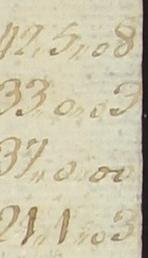 42,,5,,08
33,,0,,03
37,,0,,00
21,,1,,03